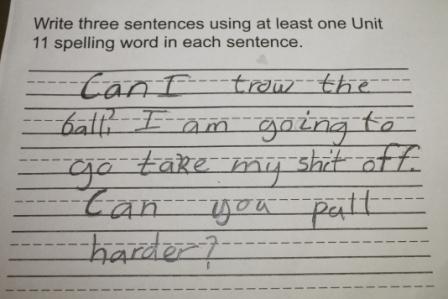 Write three sentences using at least one Unit
11 spelling word in each sentence.
Can I trow the
ball? I am going to
go take my shit off.
Can you pull
harder?